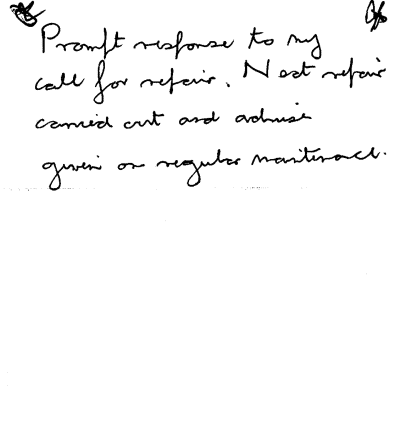 Prompt response to my
call for repair. Neat repair
carried out and advise
given on regular maintenance.